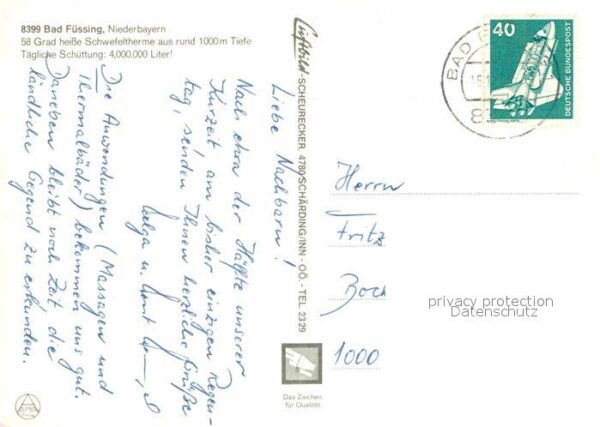 8399 Bad Füssing, Niederbayern
58 Grad heiße Schwefeltherme aus rund 1000 m Tiefe
Tägliche Schüttung: 4,000.000 Liter!
Liebe Nachbarn!
Nach etwa der Hälfte unserer
Kurzeit, am bisher einzigen Regen-
tag, senden Ihnen herzliche Grüße
Helga u.
Die Anwendungen (Massagen und
Thermalbäder) bekommen uns gut.
Daneben bleibt noch Zeit, die
ländliche Gegend zu erkunden.
Luftbild-SCHEURECKER, 4780 SCHÄRDING/INN - OÖ. - TEL. 2329
Das Zeichen
für Qualität
BAD
40
DEUTSCHE BUNDESPOST
Herrn
Fritz
Boch
1000
privacy protection
Datenschutz